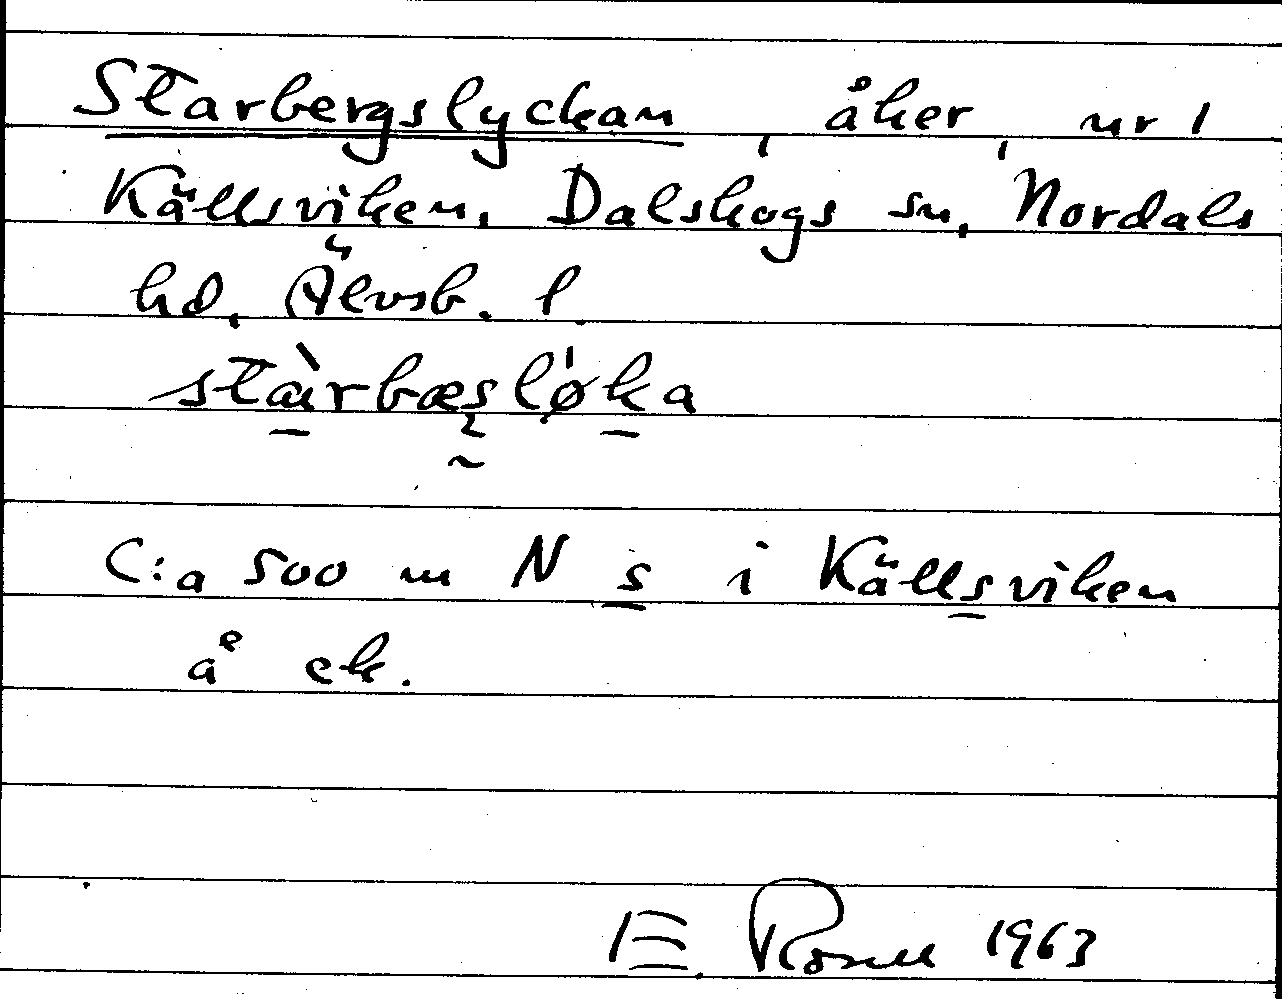 Starbergslyckan, åker, nr 1
Källsviken, Dalskogs sn, Nordals
hd, Älvsb. l.
stàrbæsløka
C:a 500 m N s i Källsviken
å ek.
E. Rosell 1963